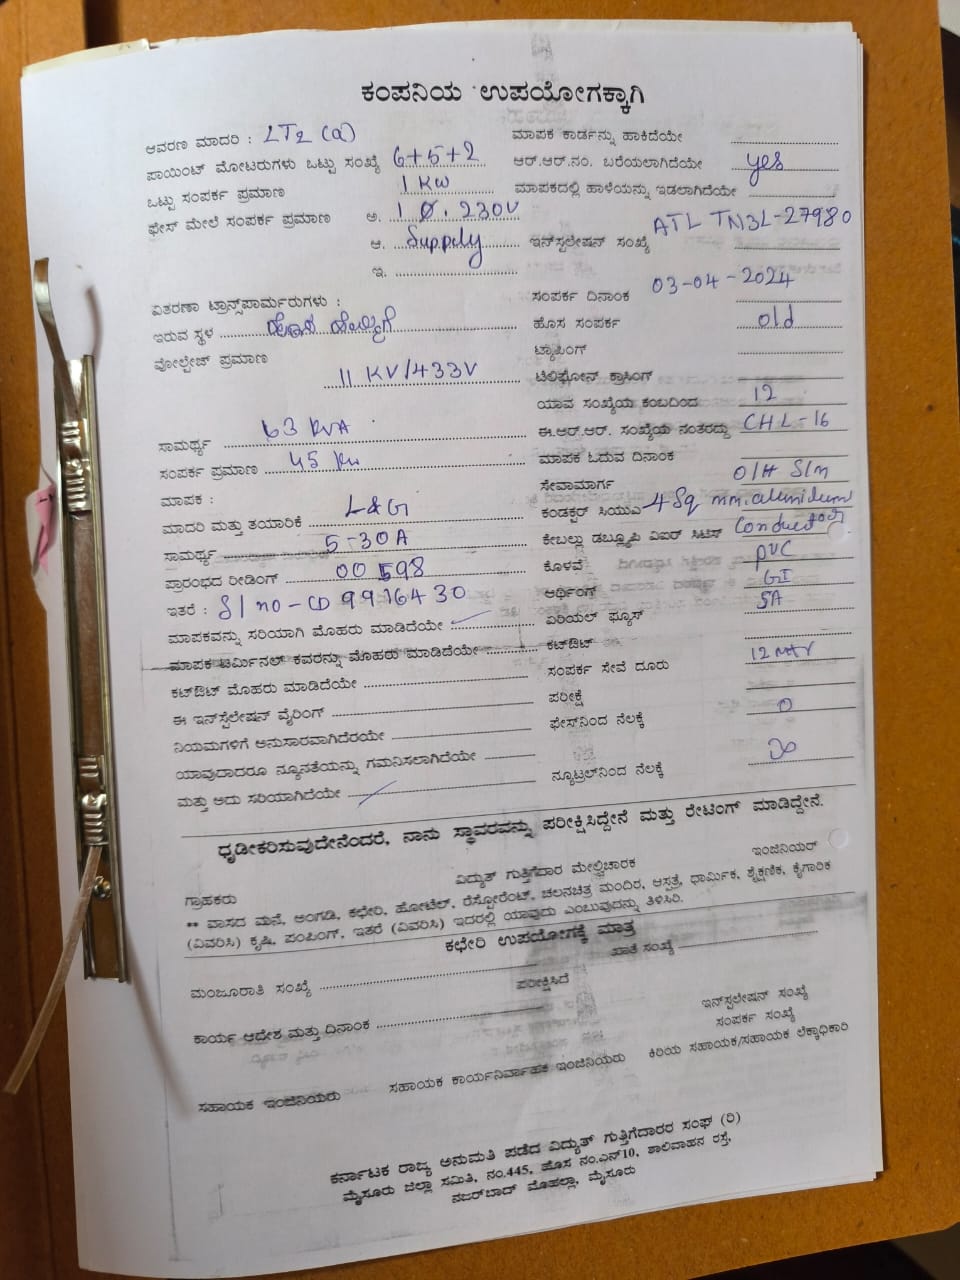 ಕಂಪನಿಯ ಉಪಯೋಗಕ್ಕಾಗಿ
ಆವರಣ ಮಾದರಿ : LT2 (a)
ಪಾಯಿಂಟ್ ಮೋಟರುಗಳು ಒಟ್ಟು ಸಂಖ್ಯೆ 6+5+2
ಒಟ್ಟು ಸಂಪರ್ಕ ಪ್ರಮಾಣ 1 KW
ಫೇಸ್ ಮೇಲೆ ಸಂಪರ್ಕ ಪ್ರಮಾಣ ಅ. 1 Ø. 230V
ಆ. Supply
ಇ.
ವಿತರಣಾ ಟ್ರಾನ್ಸ್‌ಪಾರ್ಮರುಗಳು :
ಇರುವ ಸ್ಥಳ
ವೋಲ್ಟೇಜ್ ಪ್ರಮಾಣ
11 KV/433V
ಸಾಮರ್ಥ್ಯ 63 KVA
ಸಂಪರ್ಕ ಪ್ರಮಾಣ 45 KW
ಮಾಪಕ :
ಮಾದರಿ ಮತ್ತು ತಯಾರಿಕೆ L&G
ಸಾಮರ್ಥ್ಯ 5-30A
ಪ್ರಾರಂಭದ ರೀಡಿಂಗ್ 00598
ಇತರೆ : Sl no - CD 9916430
ಮಾಪಕವನ್ನು ಸರಿಯಾಗಿ ಮೊಹರು ಮಾಡಿದೆಯೇ
ಮಾಪಕ ಟರ್ಮಿನಲ್ ಕವರನ್ನು ಮೊಹರು ಮಾಡಿದೆಯೇ
ಕಟ್‌ಔಟ್ ಮೊಹರು ಮಾಡಿದೆಯೇ
ಈ ಇನ್‌ಸ್ಟಲೇಷನ್ ವೈರಿಂಗ್
ನಿಯಮಗಳಿಗೆ ಅನುಸಾರವಾಗಿದೆರಯೇ
ಯಾವುದಾದರೂ ನ್ಯೂನತೆಯನ್ನು ಗಮನಿಸಲಾಗಿದೆಯೇ
ಮತ್ತು ಅದು ಸರಿಯಾಗಿದೆಯೇ
ಮಾಪಕ ಕಾರ್ಡನ್ನು ಹಾಕಿದೆಯೇ
ಆರ್.ಆರ್.ನಂ. ಬರೆಯಲಾಗಿದೆಯೇ yes
ಮಾಪಕದಲ್ಲಿ ಹಾಳೆಯನ್ನು ಇಡಲಾಗಿದೆಯೇ
ಇನ್‌ಸ್ಟಲೇಷನ್ ಸಂಖ್ಯೆ ATL TN3L-27980
ಸಂಪರ್ಕ ದಿನಾಂಕ 03-04-2024
ಹೊಸ ಸಂಪರ್ಕ old
ಟ್ಯಾಪಿಂಗ್
ಟೆಲಿಫೋನ್ ಕ್ರಾಸಿಂಗ್
ಯಾವ ಸಂಖ್ಯೆಯ ಕಂಬದಿಂದ 12
ಈ.ಆರ್.ಆರ್. ಸಂಖ್ಯೆಯ ನಂತರದ್ದು CHL-16
ಮಾಪಕ ಓದುವ ದಿನಾಂಕ
ಸೇವಾಮಾರ್ಗ O/H S/m
ಕಂಡಕ್ಟರ್ ಸಿಯುಎ 4 Sq mm. alumidum
ಕೇಬಲ್ಲು ಡಬ್ಲ್ಯೂಪಿ ವಿಐರ್ ಸಿಟಿಸ್ Conductor
ಕೊಳವೆ PVC
ಅರ್ಥಿಂಗ್ GI
ಏರಿಯಲ್ ಫ್ಯೂಸ್ 5A
ಕಟ್‌ಔಟ್
ಸಂಪರ್ಕ ಸೇವೆ ದೂರು
ಪರೀಕ್ಷೆ
ಫೇಸ್‌ನಿಂದ ನೆಲಕ್ಕೆ 0
ನ್ಯೂಟ್ರಲ್‌ನಿಂದ ನೆಲಕ್ಕೆ
ಧೃಡೀಕರಿಸುವುದೇನೆಂದರೆ, ನಾನು ಸ್ಥಾವರವನ್ನು ಪರೀಕ್ಷಿಸಿದ್ದೇನೆ ಮತ್ತು ರೇಟಿಂಗ್ ಮಾಡಿದ್ದೇನೆ.
ಗ್ರಾಹಕರು ವಿದ್ಯುತ್ ಗುತ್ತಿಗೆದಾರ ಮೇಲ್ವಿಚಾರಕ ಇಂಜಿನಿಯರ್
** ವಾಸದ ಮನೆ, ಅಂಗಡಿ, ಕಛೇರಿ, ಹೋಟೆಲ್, ರೆಸ್ಟೋರೆಂಟ್, ಚಲನಚಿತ್ರ ಮಂದಿರ, ಆಸ್ಪತ್ರೆ, ಧಾರ್ಮಿಕ, ಶೈಕ್ಷಣಿಕ, ಕೈಗಾರಿಕ
(ವಿವರಿಸಿ) ಕೃಷಿ, ಪಂಪಿಂಗ್, ಇತರೆ (ವಿವರಿಸಿ) ಇದರಲ್ಲಿ ಯಾವುದು ಎಂಬುವುದನ್ನು ತಿಳಿಸಿರಿ.
ಕಛೇರಿ ಉಪಯೋಗಕ್ಕೆ ಮಾತ್ರ
ಮಂಜೂರಾತಿ ಸಂಖ್ಯೆ ಖಾತೆ ಸಂಖ್ಯೆ
ಪರೀಕ್ಷಿಸಿದೆ
ಕಾರ್ಯ ಆದೇಶ ಮತ್ತು ದಿನಾಂಕ ಇನ್‌ಸ್ಟಲೇಷನ್ ಸಂಖ್ಯೆ
ಸಂಪರ್ಕ ಸಂಖ್ಯೆ
ಸಹಾಯಕ ಇಂಜಿನಿಯರು ಸಹಾಯಕ ಕಾರ್ಯನಿರ್ವಾಹಕ ಇಂಜಿನಿಯರು ಕಿರಿಯ ಸಹಾಯಕ/ಸಹಾಯಕ ಲೆಕ್ಕಾಧಿಕಾರಿ
ಕರ್ನಾಟಕ ರಾಜ್ಯ ಅನುಮತಿ ಪಡೆದ ವಿದ್ಯುತ್ ಗುತ್ತಿಗೆದಾರರ ಸಂಘ (ರಿ)
ಮೈಸೂರು ಜಿಲ್ಲಾ ಸಮಿತಿ, ನಂ.445, ಹೊಸ ನಂ.ಎನ್10, ಶಾಲಿವಾಹನ ರಸ್ತೆ,
ನಜರ್‌ಬಾದ್ ಮೊಹಲ್ಲಾ, ಮೈಸೂರು